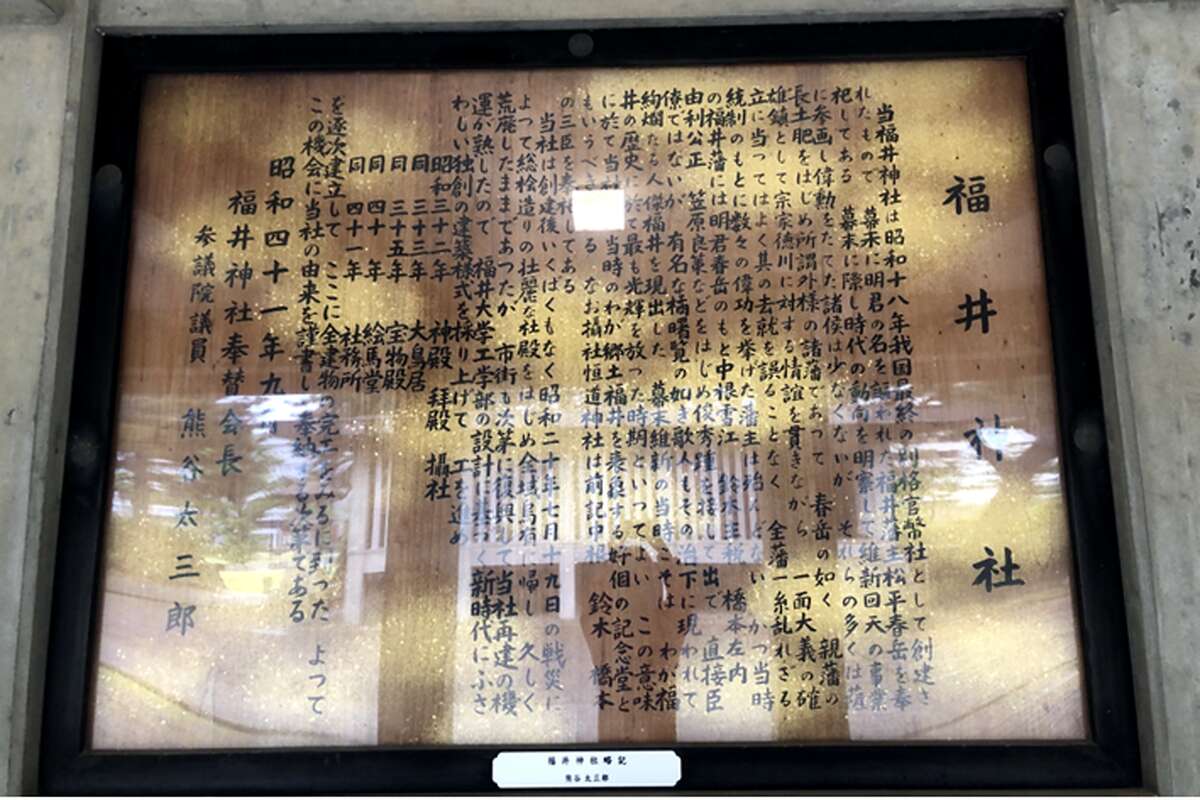 福井神社
当福井神社は昭和十八年我国最終の別格官幣社として創建さ
れたもので 幕末に明君の名を謳われた福井藩主松平春岳を奉
祀してある 幕末に際し時代の動向を明察して維新回天の事業
に参画し偉勲をたてた諸侯は少なくないが それらの多くは薩
長土肥をはじめ所謂外様の諸藩であって 春岳の如く 親藩の
雄鎮として宗家徳川に対する情誼を貫きながら 一面大義の確
立に当ってはよく其の去就を誤ることなく 全藩一糸乱れざる
統制のもとに数々の偉功を挙げた藩主は殆んどないかつ当時
の福井藩には明君春岳のもと中根雪江 鈴木主税 橋本左内
由利公正 笠原良策などをはじめ俊秀踵を接して出で 直接臣
僚ではないが 有名な橘曙覧の如き歌人もその治下に現われて
絢爛たる人傑福井を現出した 幕末維新の当時こそは わが福
井の歴史に於て最も光輝を放った時期といってよい この意味
に於て当社は当時のわが郷土福井を表象する好個の記念堂と
もいうべきである なお摂社恒道神社は前記中根 鈴木 橋本
の三臣を奉祀してある
当社は創建後いくばくもなく昭和二十年七月十九日の戦災に
よって総桧造りの壮麗な社殿をはじめ全域烏有に帰し 久しく
荒廃したままであったが 市街も次第に復興して当社再建の機
運が熟したので 福井大学工学部の設計に基づく新時代にふさ
わしい独創の建築様式を採り上げて 工を進め
昭和三十二年 神殿 拝殿 摂社
同 三十三年 大鳥居
同 三十五年 宝物殿
同 四十年 絵馬堂
同 四十一年 社務所
を逐次建立して ここに全建物の完工をみるに到った よって
この機会に当社の由来を謹書し 奉納する筆である
昭和四十一年九月
福井神社奉賛会長
参議院議員 熊谷太三郎
福井神社略記
熊谷太三郎